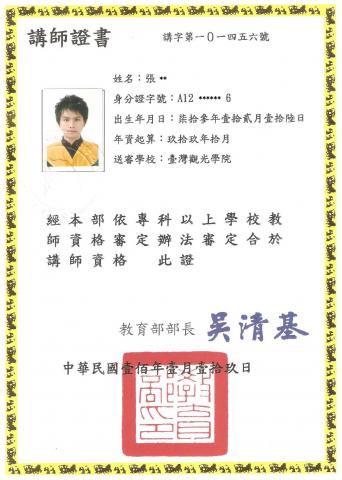 講師證書
講字第一０一四五六號
姓名：張 **
身分證字號：A12 ****** 6
出生年月日：柒拾參年壹拾貳月壹拾陸日
年資起算：玖拾玖年拾月
送審學校：臺灣觀光學院
經本部依專科以上學校教
師資格審定辦法審定合於
講師資格 此證
教育部部長 吳清基
中華民國壹佰年壹月壹拾玖日